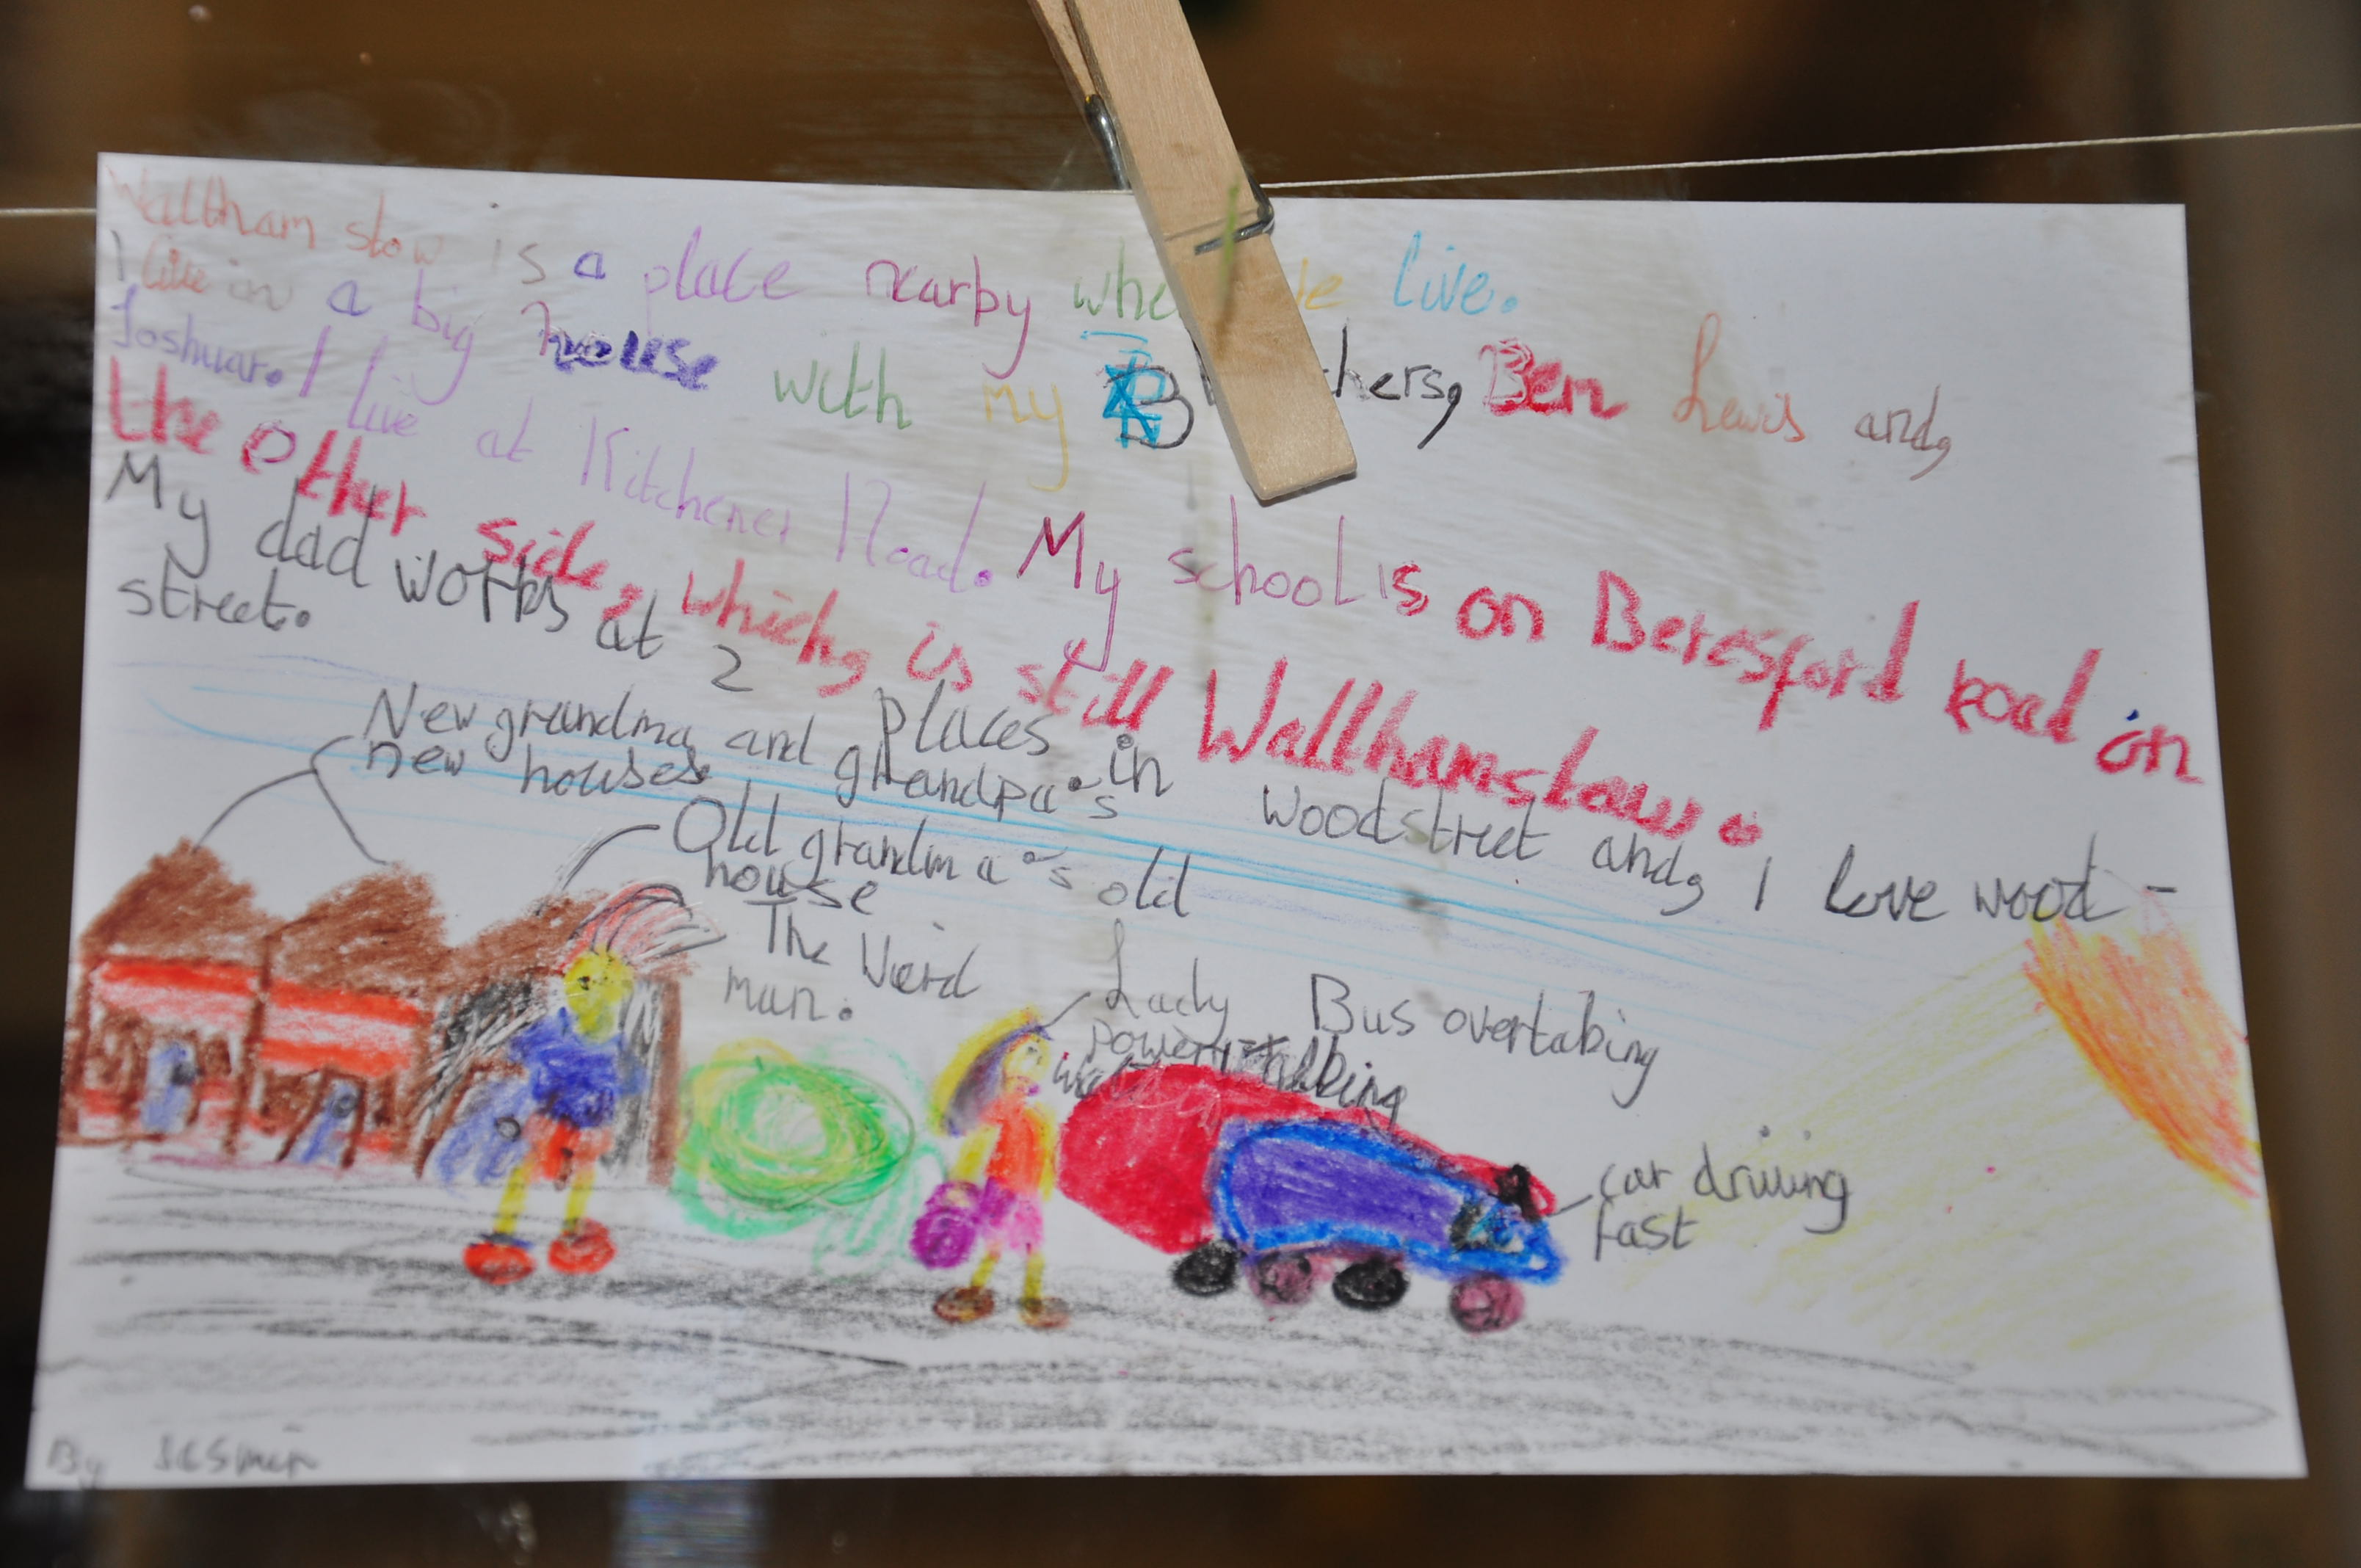 Waltham stow is a place nearby whe le live.
I live in a big house with my B hers, Ben Lewis and,
Joshuar. I live at Kitchener Road. My school is on Beresford road on
the other side, which, is still Wallhamstow.
My dad works at 2 places in woodstreet and, I love wood-
street.
New grandma and grandpa's
new houses.
Old grandma's old
house
The Weird
man.
Lady
power walking
Bus overtaking
car driving
fast
By Jesmin